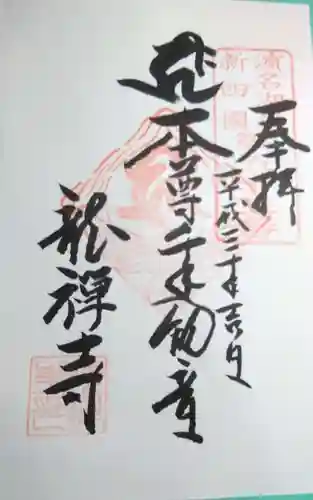 奉拝
平成三十年吉日
本尊千手観音
龍禅寺
新四國